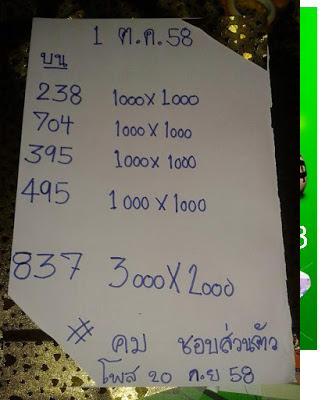 1 ต.ค.58
บน
238 1000X1000
704 1000X1000
395 1000X1000
495 1000X1000
837 3000X2000
# คม ชอบส่วนตัว
โพส 20 ก.ย 58